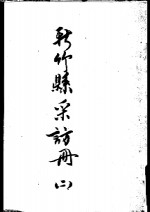 新竹縣采訪冊(二)